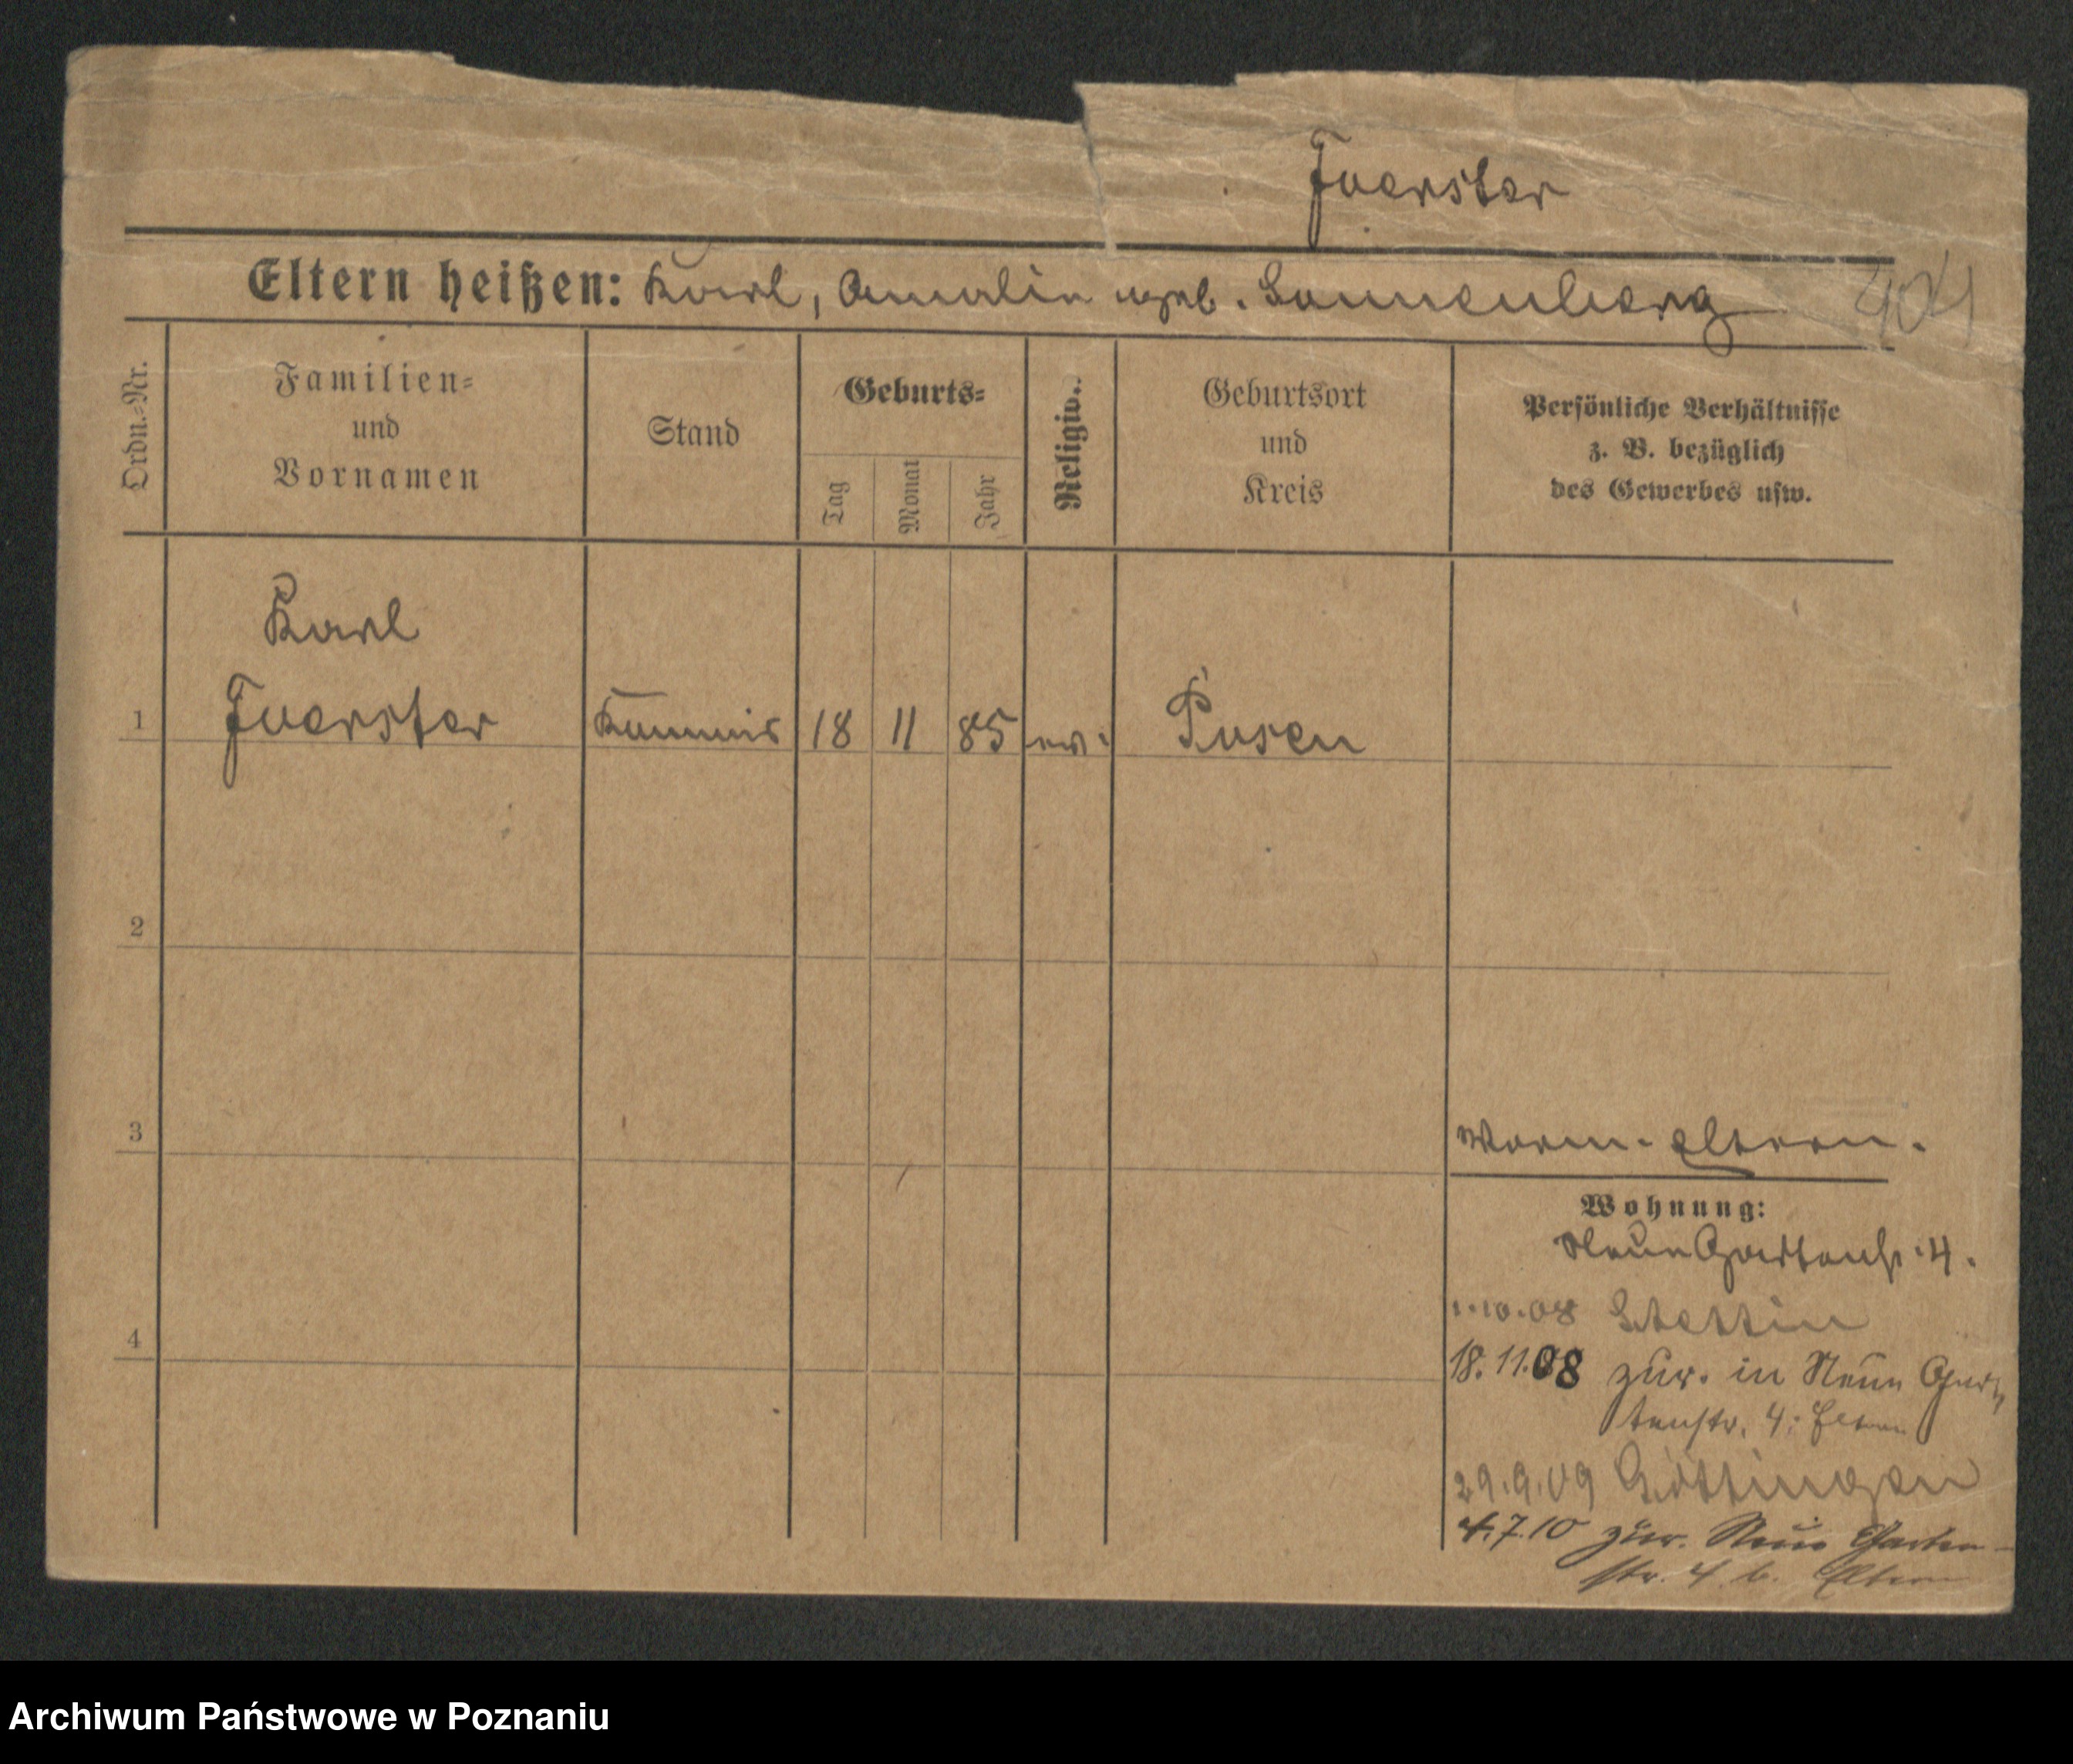 Foerster
Eltern heißen: Karl, Amalie geb. Sonnenberg 404
Ordn.=Nr.
Familien=
und
Vornamen
Stand
Geburts=
Tag
Monat
Jahr
Religion.
Geburtsort
und
Kreis
Persönliche Verhältnisse
z. B. bezüglich
des Gewerbes usw.
Karl
1 Foerster Kommis 18 11 85 ev. Posen
2
3
Eltern.
Wohnung:
Neue Gartenstr. 4.
4
1.10.08 Stettin
18.11.08 zur. in Neue Gar=
tenstr. 4: Eltern
29.9.09 Göttingen
4.7.10 zur. Neue Garten-
str. 4 b. Eltern
Archiwum Państwowe w Poznaniu